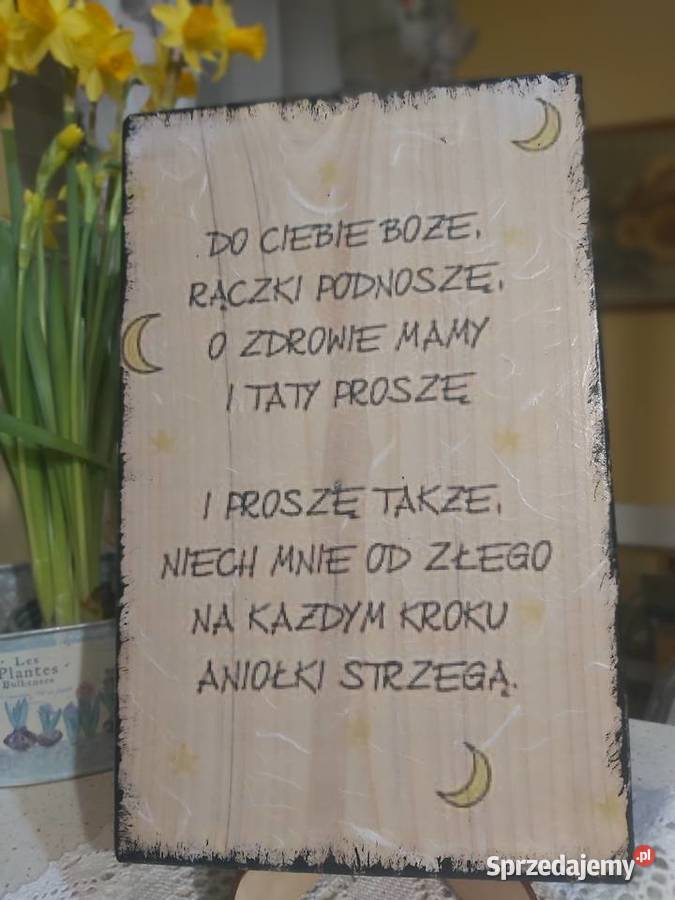 DO CIEBIE BOZE,
RĄCZKI PODNOSZĘ,
O ZDROWIE MAMY
I TATY PROSZĘ
I PROSZĘ TAKZE,
NIECH MNIE OD ZŁEGO
NA KAZDYM KROKU
ANIOŁKI STRZEGĄ.
Les
Plantes
Bulbeuses
Sprzedajemy.pl